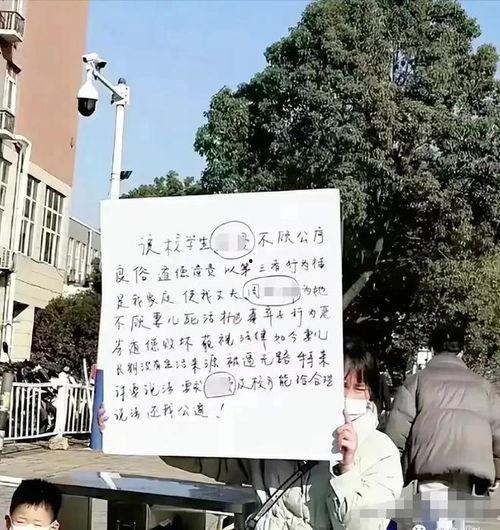 该校学生 不顾公序
良俗 道德 以第三者行为插
足我家庭 使我丈夫 周 为她
不顾妻儿死活 抛 弃 行为恶
劣道德败坏 藐视法律 如今妻儿
长期没有生活来源 被逼无路 特来
讨要说法 要求 及校方能给合理
说法 还我公道！